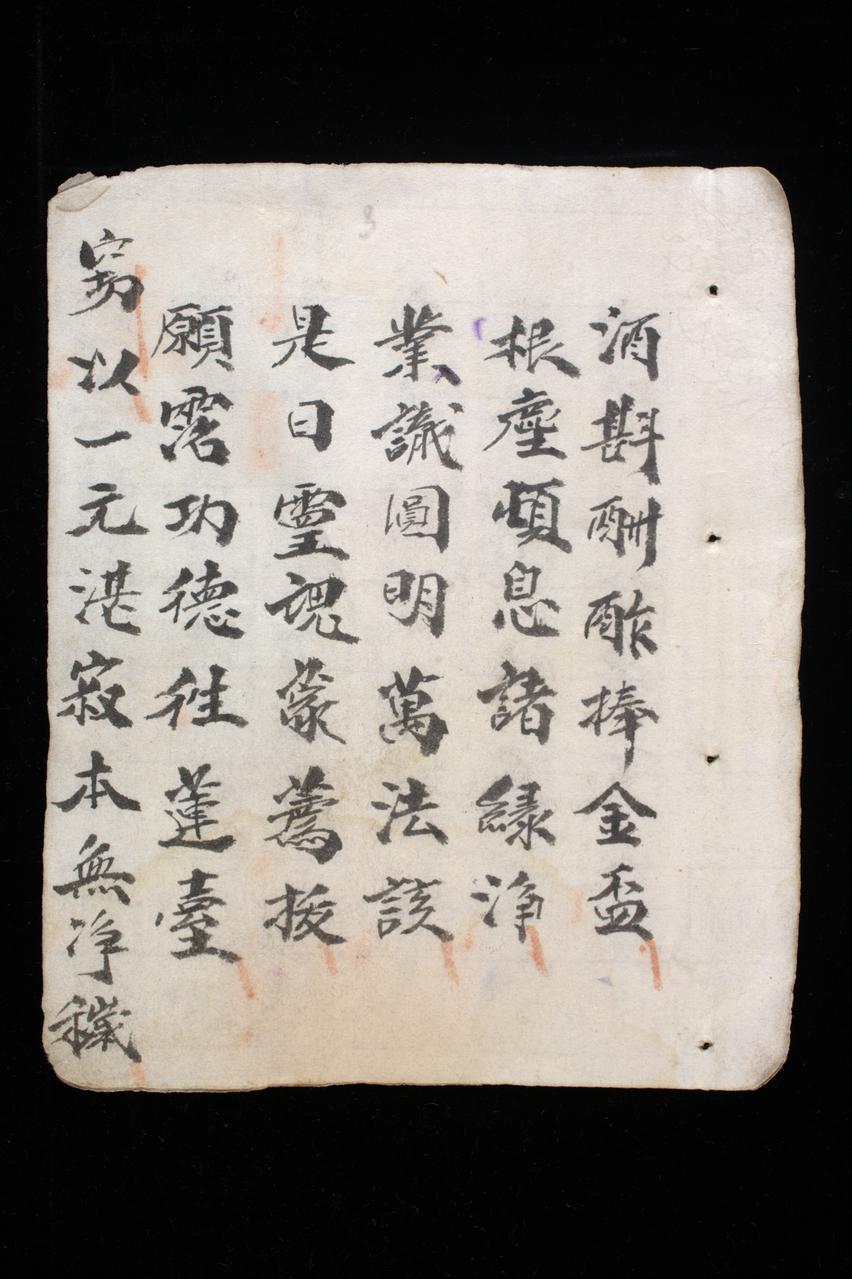 酒斟酬酢捧金盃
根塵頓息諸緣淨
業識圓明萬法該
是日靈魂蒙薦拔
願霑功德往蓮臺
窃以一元湛寂本無净穢